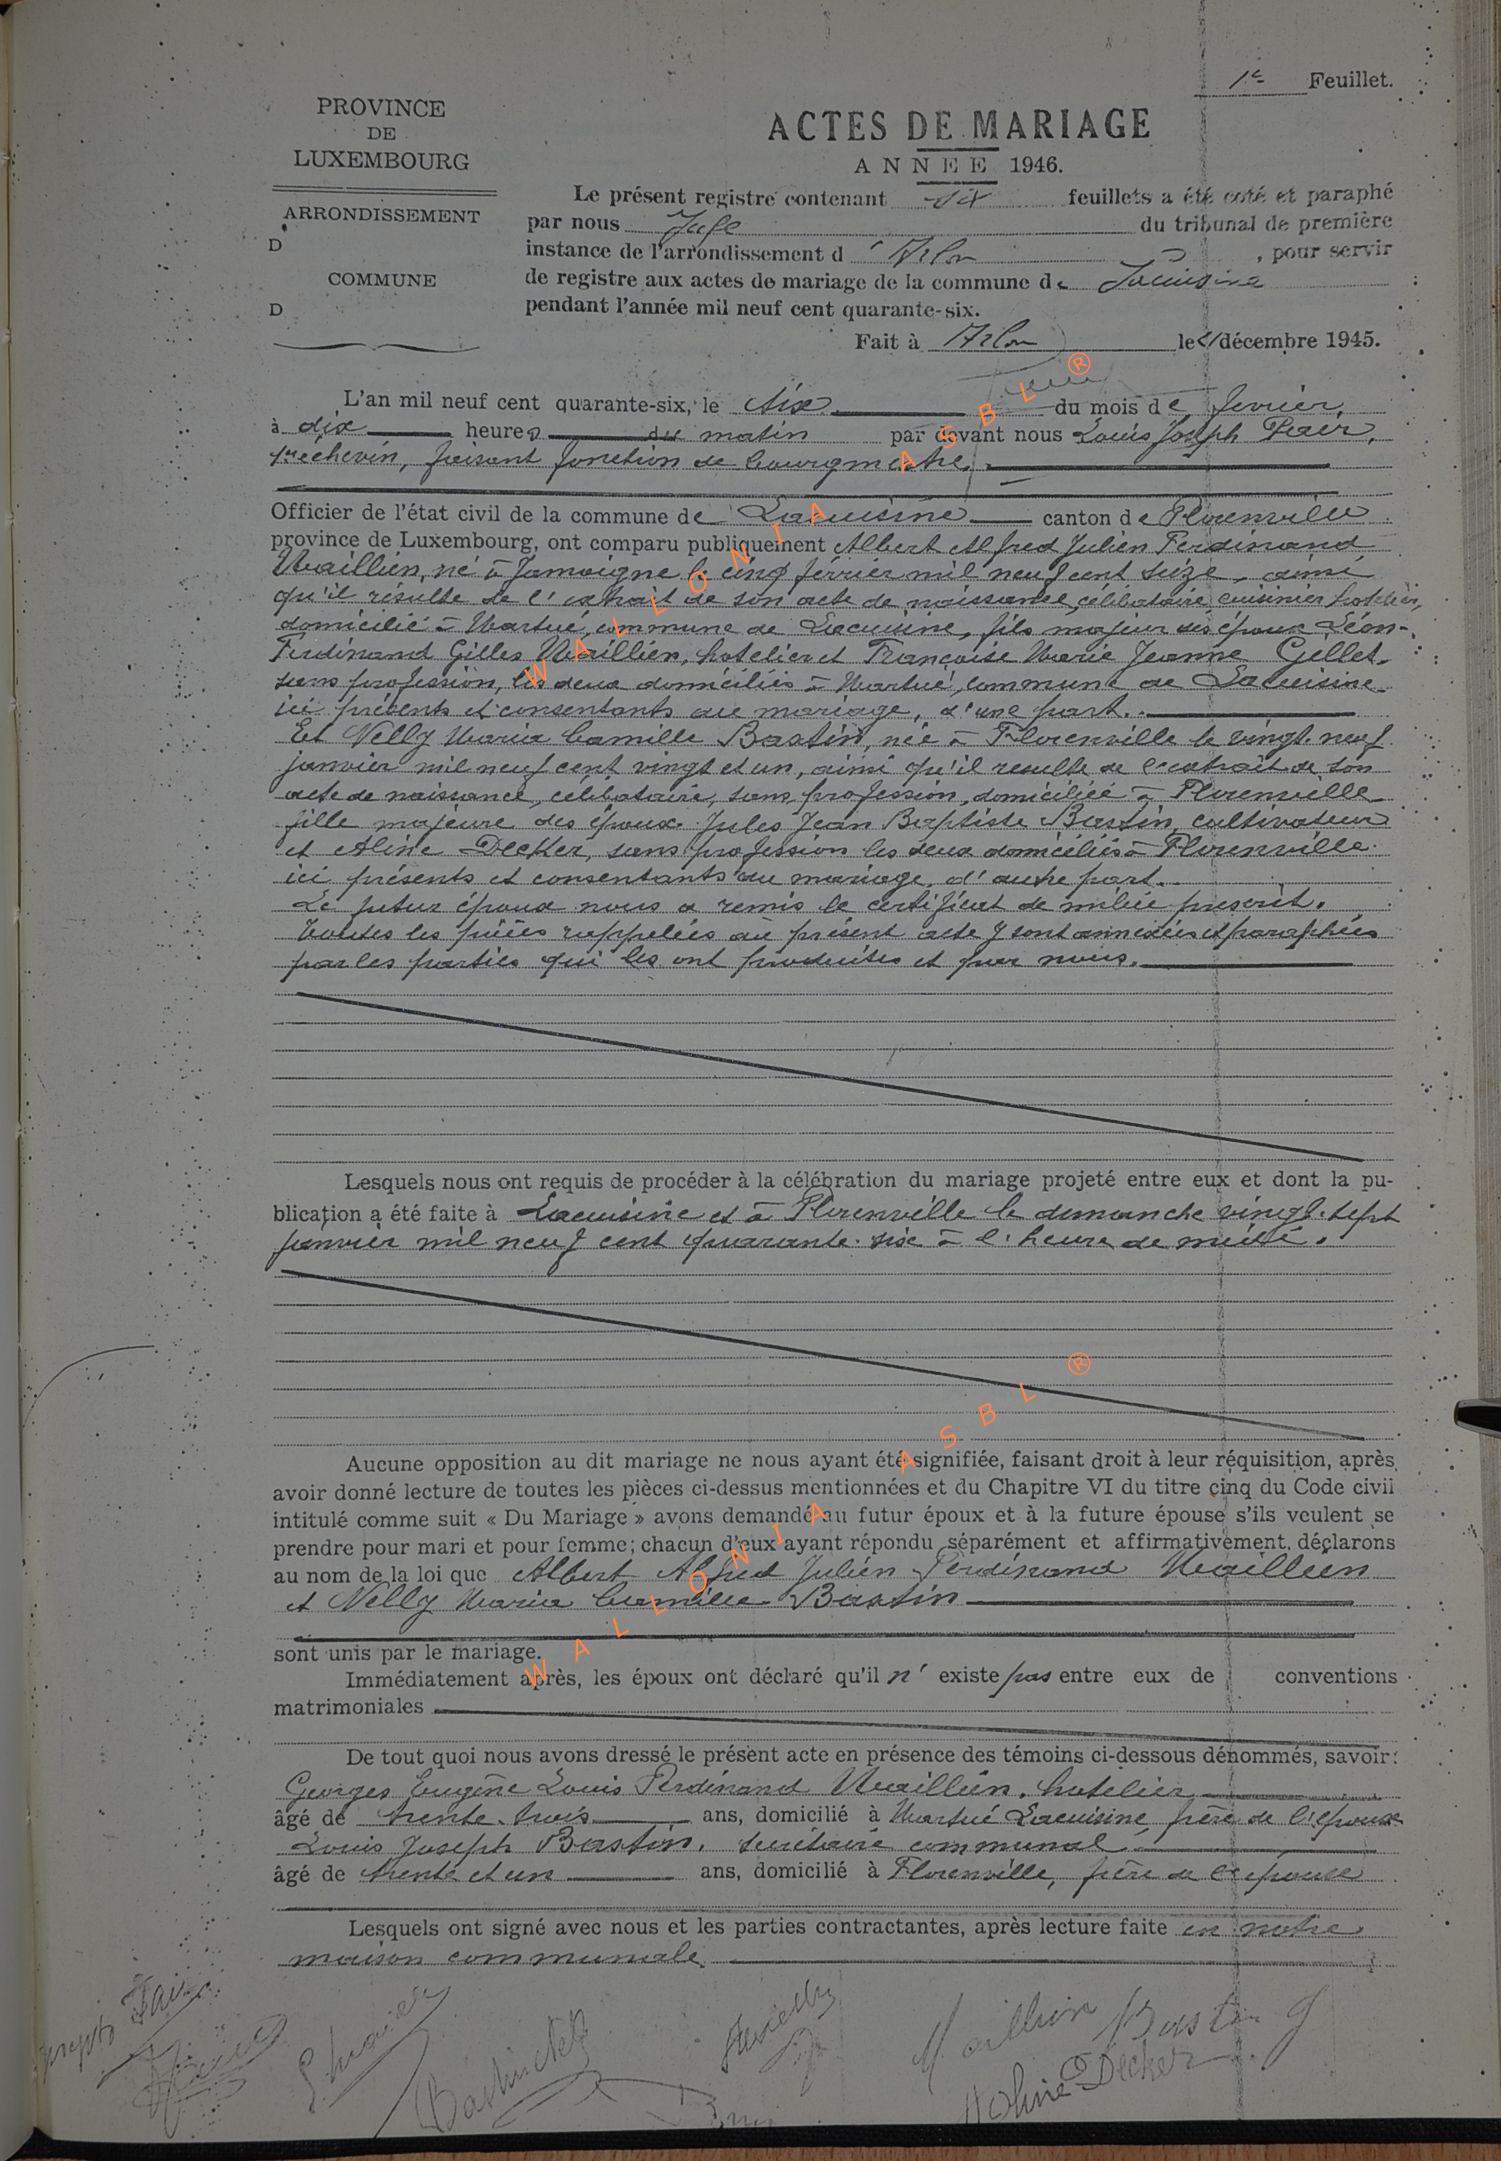 1r Feuillet.
PROVINCE
DE
LUXEMBOURG
ARRONDISSEMENT
D
COMMUNE
D
ACTES DE MARIAGE
ANNEE 1946.
Le présent registre contenant six feuillets a été coté et paraphé
par nous Juge du tribunal de première
instance de l'arrondissement d'Arlon, pour servir
de registre aux actes de mariage de la commune de Lacuisine
pendant l'année mil neuf cent quarante-six.
Fait à Arlon le décembre 1945.
L'an mil neuf cent quarante-six, le six du mois de février,
à dix heures du matin par devant nous Louis Joseph
1er échevin, faisant fonction de bourgmestre.
Officier de l'état civil de la commune de Lacuisine canton de Florenville
province de Luxembourg, ont comparu publiquement Albert Alfred Julien Ferdinand
Maillien, né à Jamoigne le cinq février mil neuf cent seize, ainsi
qu'il résulte de l'extrait de son acte de naissance, célibataire, cuisinier hotelier,
domicilié à Martué, commune de Lacuisine, fils majeur des époux Léon-
Ferdinand Gilles Maillien, hotelier et Françoise Marie Jeanne Gillet,
sans profession, les deux domiciliés à Martué, commune de Lacuisine
ici présents et consentants au mariage, d'une part.
Et Nelly Maria Camille Bastin, née à Florenville le vingt-neuf
janvier mil neuf cent vingt et un, ainsi qu'il resulte de l'extrait de son
acte de naissance, célibataire, sans profession, domiciliée à Florenville
fille majeure des époux Jules Jean Baptiste Bastin, cultivateur
et Aline Decker, sans profession les deux domiciliés à Florenville
ici présents et consentants au mariage, d'autre part.
Le futur époux nous a remis le certificat de milice prescrit.
Toutes les pièces rappelées au présent acte y sont annexées et paraphées
par les parties qui les ont produites et par nous.
Lesquels nous ont requis de procéder à la célébration du mariage projeté entre eux et dont la pu-
blication a été faite à Lacuisine et à Florenville le dimanche vingt-sept
janvier mil neuf cent quarante-six à l'heure de midi.
Aucune opposition au dit mariage ne nous ayant été signifiée, faisant droit à leur réquisition, après
avoir donné lecture de toutes les pièces ci-dessus mentionnées et du Chapitre VI du titre cinq du Code civil
intitulé comme suit « Du Mariage » avons demandé au futur époux et à la future épouse s'ils veulent se
prendre pour mari et pour femme; chacun d'eux ayant répondu séparément et affirmativement, déclarons
au nom de la loi que Albert Alfred Julien Ferdinand Maillien
et Nelly Maria Camille Bastin
sont unis par le mariage.
Immédiatement après, les époux ont déclaré qu'il n'existe pas entre eux de conventions
matrimoniales
De tout quoi nous avons dressé le présent acte en présence des témoins ci-dessous dénommés, savoir:
Georges Eugène Louis Ferdinand Maillien, hotelier
âgé de trente-trois ans, domicilié à Martué Lacuisine frère de l'époux
Louis Joseph Bastin, secrétaire communal
âgé de trente et un ans, domicilié à Florenville, frère de l'épouse
Lesquels ont signé avec nous et les parties contractantes, après lecture faite en notre
maison communale.
Maillien Bastin
Aline Decker
WALLONIA ASBL ®
WALLONIA ASBL ®